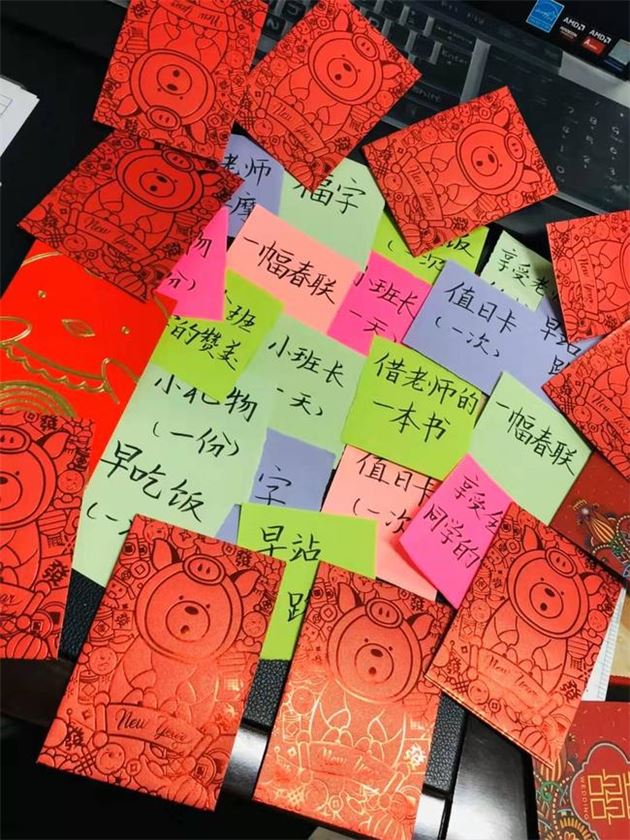 New Year
AMD
AMD
New Year
New Year
老师
福字
饭
New Year
物
份）
一幅春联
小班长
一天）
值日卡
（一次）
享受老
早站
班
的赞美
小班长
一天）
借老师的
一本书
一幅春联
小礼物
（一份）
早吃饭
字
值日卡
（一次
享受全
同学的
早站
New Year
New Year
New Year
WEDDING
囍